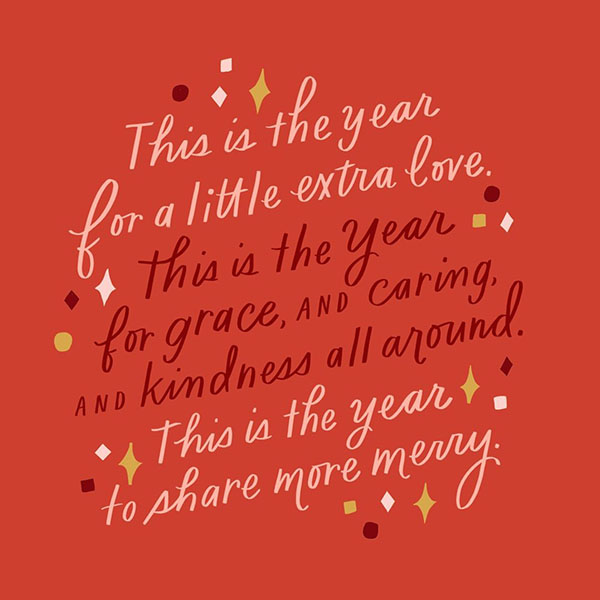 This is the year
for a little extra love.
This is the Year
for grace, AND caring,
AND kindness all around.
This is the year
to share more merry.